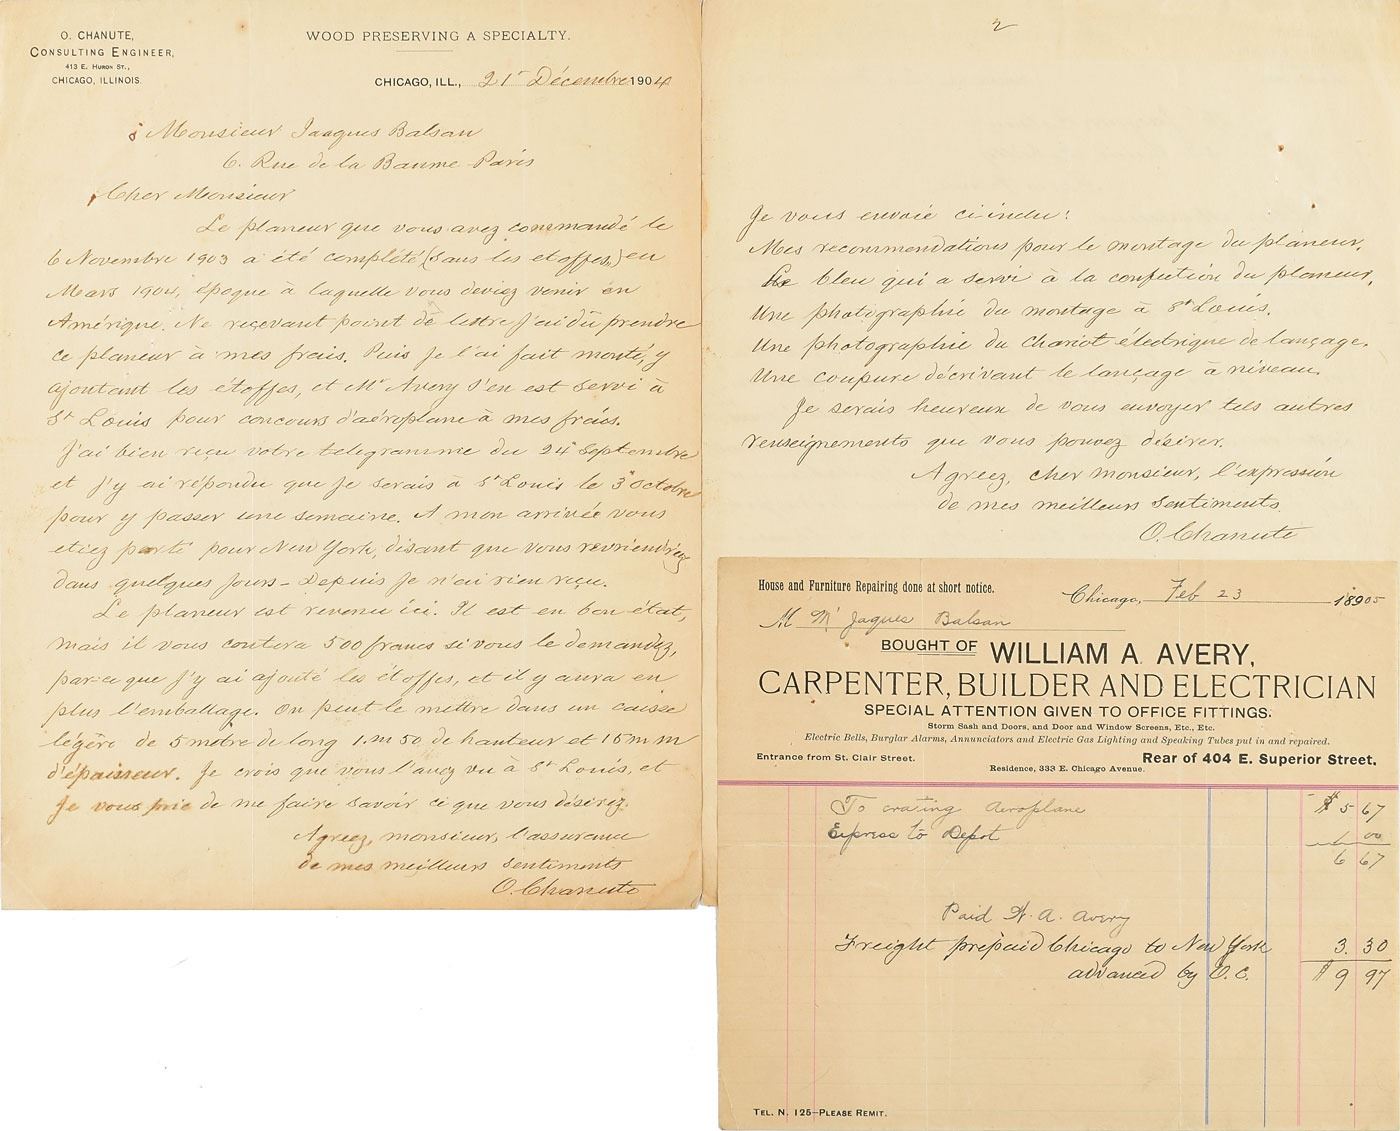 O. CHANUTE,
CONSULTING ENGINEER,
413 E. HURON ST.,
CHICAGO, ILLINOIS.
WOOD PRESERVING A SPECIALTY.
CHICAGO, ILL., 21 Décembre 1904
Monsieur Jacques Balsan
6. Rue de la Baume Paris
Cher Monsieur
Le planeur que vous avez commandé le
6 Novembre 1903 a été complété (sans les etoffes) en
Mars 1904, époque à laquelle vous deviez venir en
Amérique. Ne reçevant point de lettre J'ai dû prendre
ce planeur à mes frais. Puis Je l'ai fait monté, y
ajoutant les étoffes, et Mr Avery s'en est servi à
St Louis pour concours d'aéroplane à mes frais.
J'ai bien reçu votre telegramme du 24 Septembre
et J'y ai répondu que Je serais à St Louis le 3 Octobre
pour y passer une semaine. A mon arrivée vous
etiez parti pour New York, disant que vous revriendriez
dans quelques Jours - Depuis Je n'ai rien reçu.
Le planeur est revenu ici. Il est en bon état,
mais il vous coutera 500 francs si vous le demandez,
par-ce que J'y ai ajouté les étoffes, et il y aura en
plus l'emballage. On peut le mettre dans un caisse
légère de 5 mètre de long 1.m 50 de hauteur et 15 mm
d'épaisseur. Je crois que vous l'avez vu à St Louis, et
Je vous prie de me faire savoir ci que vous désirez.
Agreez, monsieur, l'assurance
de mes meilleurs sentiments
O. Chanute
2
Je vous envoie ci-inclu:
Mes recommendations pour le montage du planeur.
Le bleu qui a servi à la confection du planeur,
Une photographie du montage à St Louis.
Une photographie du chariot électrique de lançage.
Une coupure décrivant le lançage à niveau.
Je serais heureux de vous envoyer tels autres
renseignements que vous pouvez désirer.
Agreez, cher monsieur, l'expression
de mes meilleurs sentiments
O. Chanute
House and Furniture Repairing done at short notice.
Chicago, Feb 23 18905
M Mr Jaques Balsan
BOUGHT OF WILLIAM A. AVERY,
CARPENTER, BUILDER AND ELECTRICIAN
SPECIAL ATTENTION GIVEN TO OFFICE FITTINGS.
Storm Sash and Doors, and Door and Window Screens, Etc., Etc.
Electric Bells, Burglar Alarms, Annunciators and Electric Gas Lighting and Speaking Tubes put in and repaired.
Entrance from St. Clair Street. Rear of 404 E. Superior Street.
Residence, 333 E. Chicago Avenue.
To crating Aeroplane $ 5 67
Express to Depot 1 00
6 67
Paid W. A. Avery
Freight prepaid Chicago to New York 3. 30
advanced by O. C. $ 9 97
TEL. N. 125-PLEASE REMIT.